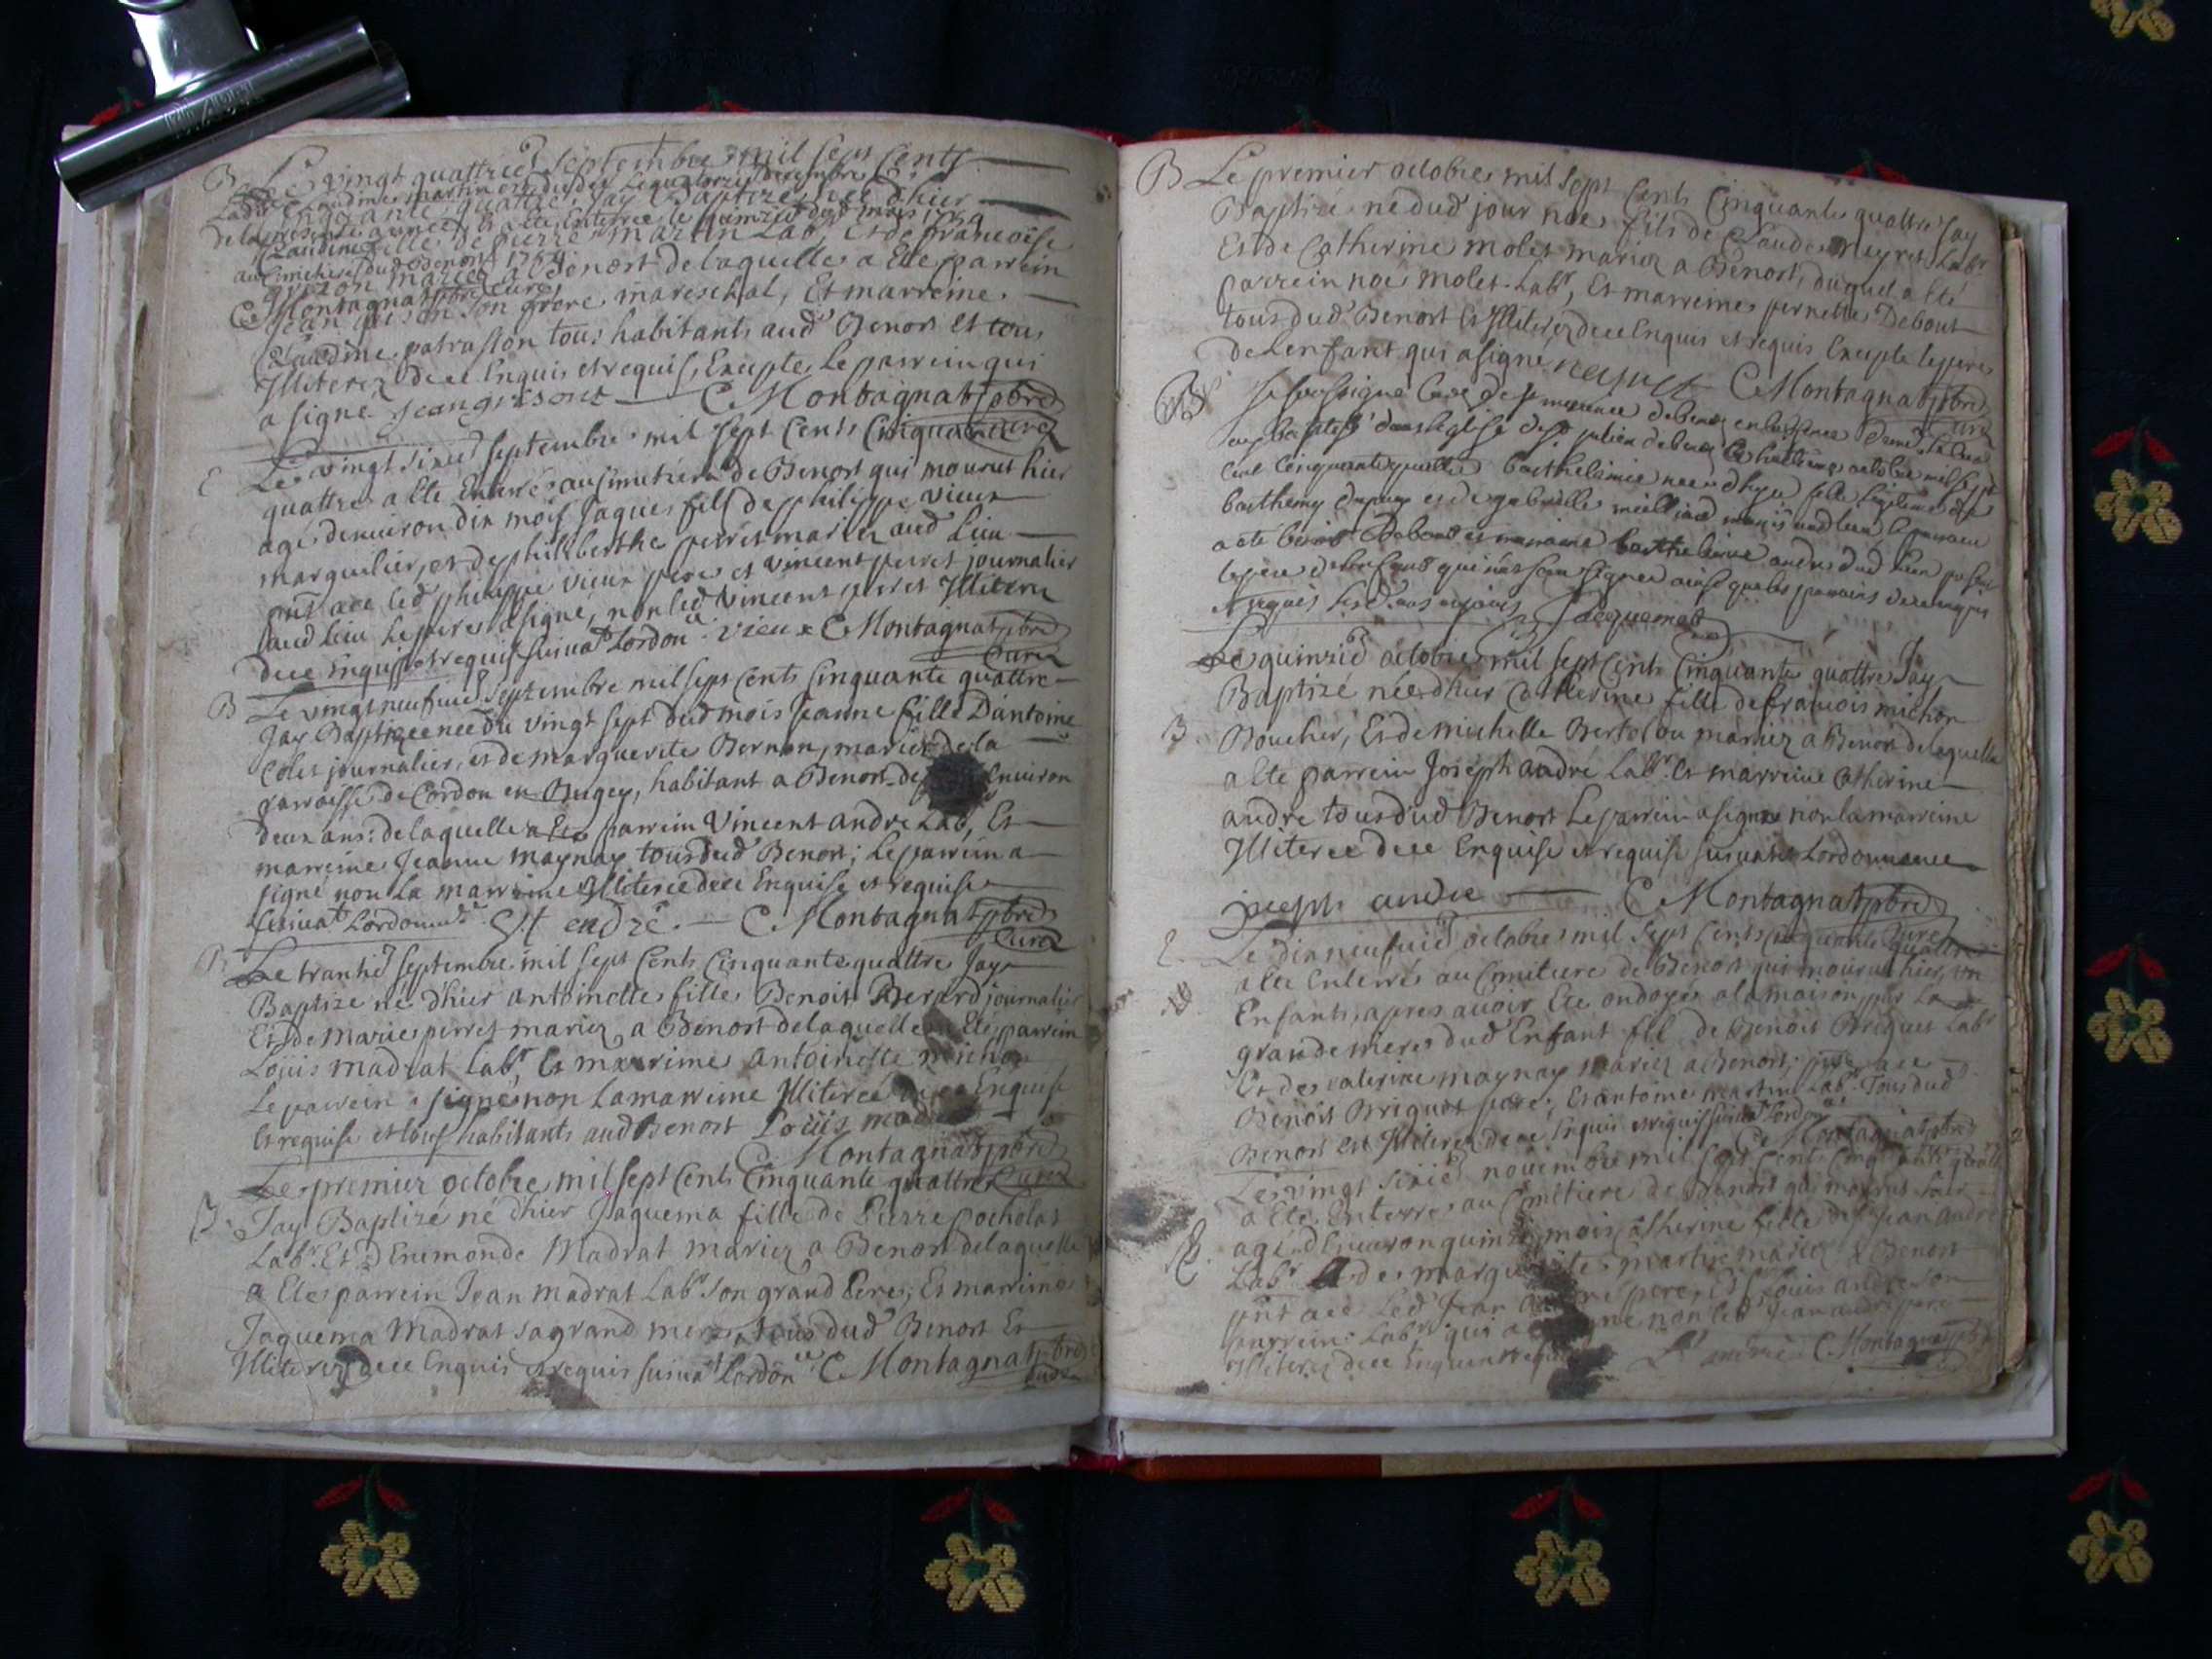 B Le vingt quattrie septembre mil sept cents
Ladte Claudine martin est dudée Le quatorzie decembre
Cinquante quattre Jay Baptizé née d'hier
de la presente année, & a eté Enterrée le quinzie dud mois 1754
Claudine fille de pierre martin Labr, et de francoise
au Cimetiere dud Benost 1754
grison mariez a Benost de laquelle a Eté parrein
C Montagnat pbre curé
Jean grison son frere mareschal, Et marreine
Claudine patrasson tous habitants aud Benost Et tous
Illiterez de ce Enquis et requis, Excepté Le parrein qui
a signé Jean grisont C Montagnat pbre
curé
E Le vingt sixie septembre mil sept cents Cinquante
quattre a Eté Enterré au simetiere de Benost qui mourut hier
agé denviron dix mois Jaques fils de philippe vieux
marguilier, et de philiberthe perret mariez aud Lieu
pnt ace led philippe vieux pere et vincent perret journalier
aud lieu Le pere a signé, non led Vincent perret Illiteré
de ce Enquis et requis suivat Lordonce vieux C Montagnat pbre
Curé
B Le vingt neufvie Septembre mil sept cents Cinquante quattre
Jay Baptizee née du vingt sept dud mois Jeanne fille Dantoine
Colet journalier, et de marguerite Bernon, mariez de la
parroisse de Cordon en Bugey, habitant a Benost de Environ
deux ans: de laquelle a Eté parrein Vincent andré Labr, Et
marreine Jeanne maynay tous dud Benost; Le parrein a
signé non La marreine Illiterée de ce Enquise et requise
suivat Lordonnce Vt endré. C Montagnat pbre
Curé
B Le trantie septembre mil sept cents Cinquante quattre Jay
Baptize né d'hier antoinette fille Benoit Berard journalier
Et de Marie perret mariez a Benost de laquelle a Eté parrein
Loüis madrat Labr, Et marrime antoinette michon
Le parrein a signé non La marrime Illiterée de ce Enquise
Et requise et tous habitants aud Benost Loüis mad
C Montagnat pbre
Curé
B. Le premier octobre mil sept Cents Cinquante quattre
Jay Baptizé né d'hier Jaquema fille de Pierre Cocholat
Labr. Et D Enemonde Madrat mariez a Benost de laquelle
a Eté parrein Jean madrat Labr Son grand Pere; Et marrime
Jaquema Madrat sa grand mere, tous dud Benost Et
Illiterez de ce Enquis et requis suivat Lordonce C Montagnat pbre
Curé
B Le premier octobre mil sept Cents Cinquante quattre Jay
Baptizé né dud jour noe fils de Claude neyret Labr
Et de Catherine molet mariez a Benost, duquel a Eté
parrein noe molet Labr, Et marreine pernette Debout
tous dud Benost Et Illiterez de ce Enquis et requis Excepté le pere
de Lenfant qui a signé neyret C Montagnat pbre
curé
Je soussigné Curé de
avoir baptisé dans l'église de St julien de le huitieme octobre mil sept
cent cinquante quattre barthelemie née d'hyer fille légitime de
barthemy dupuy et de gabrielle mariés aud lieu le parrain
a eté Benoit Debout et marraine barthelemie andré dud lieu present
le père de l'enfant qui n'ont sceu signer ainsi que les parrains de ce enquis
et requis Jacquemet
B. Le quinzie octobre mil sept cents Cinquante quattre Jay
Baptizé née d'hier Catherine fille de francois michon
Boucher, Et de michelle Bertolon mariez a Benost de laquelle
a Eté parrein Joseph andré Labr. Et marreine Catherine
andre tous dud Benost Le parrein a signé non la marreine
Illiterée de ce Enquise et requise suivant Lordonnance
joseph andre C Montagnat pbre
curé
E. Le dixneufvie octobre mil sept Cents Cinquante quattre
a Eté Enterré au Cimitiere de Benost qui mourut hier, un
Enfant, apres avoir Eté ondoyé a la maison par La
grande mere dud Enfant fils de Benoit Briquet Labr
Et de caterine maynay mariez a Benost; pnt ace
Benoit Briquet pere, Et antoine martin Labr. Tous dud
Benost Et Illiterez de ce Enquis et requis suivat Lordonce
C Montagnat pbre
E. Le vingt sixie novembre mil sept Cents Cinquante quattre
a Eté Enterré au Cimetiere de Benost qui mourut hier
agé d'Environ quinze mois Catherine fille de Jean andré
Labr Et de marguerite martin mariez a Benost
pnt ace Led Jean andré pere, Et Louis andre son
parrein Labr qui a signé non led Jean andre pere
Illiterez de ce Enquis et requis Ls andré C Montagnat pbre